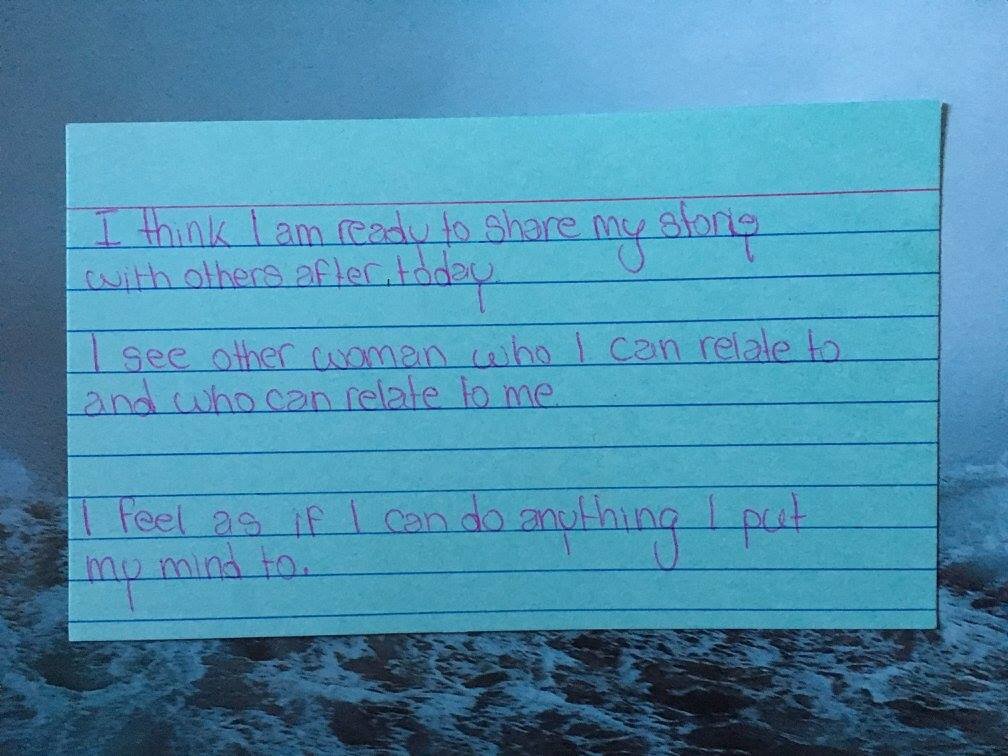 I think I am ready to share my story
with others after today.
I see other woman who I can relate to
and who can relate to me
I feel as if I can do anything I put
my mind to.